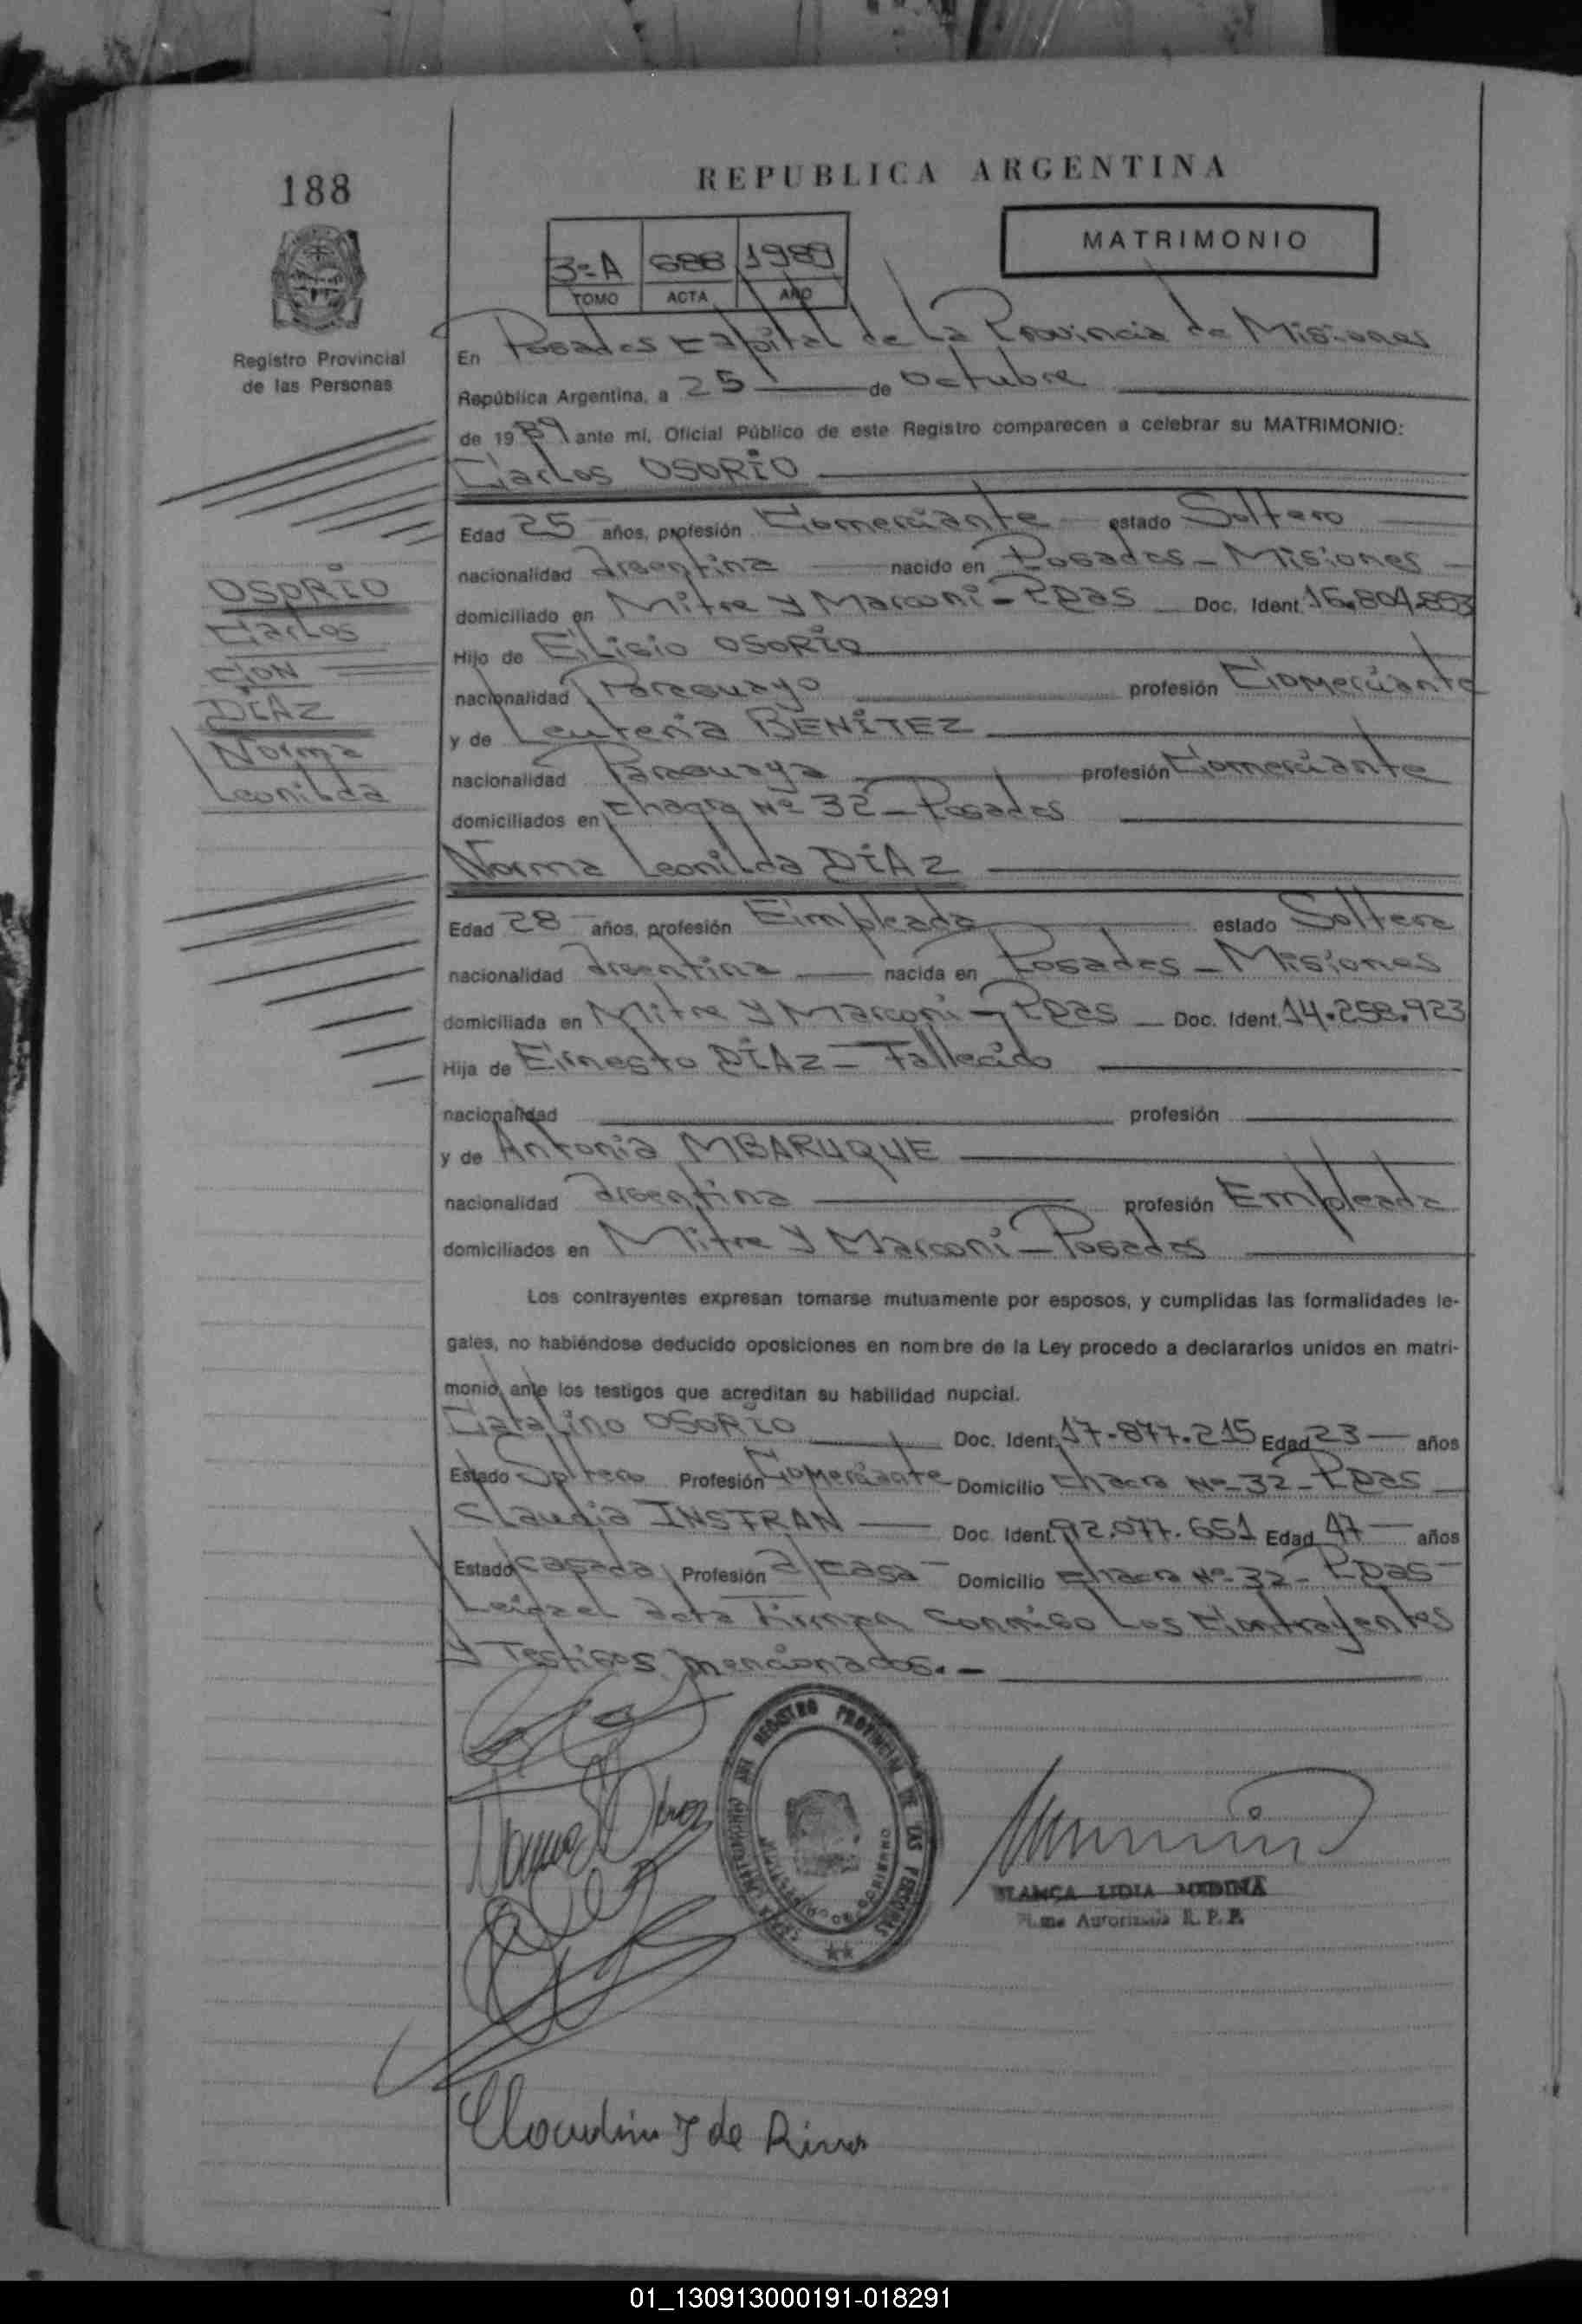 188
REPUBLICA ARGENTINA
MATRIMONIO
3º A 686 1989
TOMO ACTA AÑO
Registro Provincial
de las Personas
En Posadas Capital de La Provincia de Misiones
República Argentina, a 25 de octubre
de 1989 ante mí, Oficial Público de este Registro comparecen a celebrar su MATRIMONIO:
Carlos OSORIO
Edad 25 años, profesión Comerciante estado Soltero
nacionalidad argentina nacido en Posadas - Misiones
domiciliado en Mitre y Marconi - Pdas Doc. Ident. 16.804.853
Hijo de Elisio OSORIO
nacionalidad Paraguayo profesión Comerciante
y de Leuteria BENITEZ
nacionalidad Paraguaya profesión Comerciante
domiciliados en Chacra Nº 32 - Posadas
OSORIO
Carlos
CON
DIAZ
Norma
Leonilda
Norma Leonilda DIAZ
Edad 28 años, profesión Empleada estado Soltera
nacionalidad argentina nacida en Posadas - Misiones
domiciliada en Mitre y Marconi - Pdas Doc. Ident. 14.258.923
Hija de Ernesto DIAZ - Fallecido
nacionalidad profesión
y de Antonia MBARUQUE
nacionalidad argentina profesión Empleada
domiciliados en Mitre y Marconi - Posadas
Los contrayentes expresan tomarse mutuamente por esposos, y cumplidas las formalidades le-
gales, no habiéndose deducido oposiciones en nombre de la Ley procedo a declararlos unidos en matri-
monio, ante los testigos que acreditan su habilidad nupcial.
Catalino OSORIO Doc. Ident. 17.877.215 Edad 23 años
Estado Soltero Profesión Comerciante Domicilio Chacra Nº 32 - Pdas
Claudia INSFRAN Doc. Ident. 92.077.651 Edad 47 años
Estado casada Profesión a/casa Domicilio Chacra Nº 32 - Pdas
Leida el acta Firman conmigo Los Contrayentes
y Testigos mencionados. -
REGISTRO PROVINCIAL DE LAS PERSONAS
BLANCA LIDIA MEDINA
Firma Autorizada R. P. P.
01_130913000191-018291